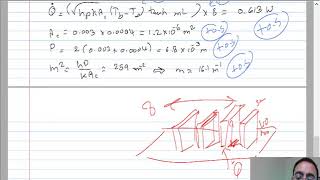 Q̇ = (√hpkAc (Tb - T∞) tanh mL) × 8 = 0.613 W
Ac = 0.003 × 0.0004 = 1.2×10⁻⁶ m² +0.5
P = 2(0.003+0.0004) = 6.8×10⁻³ m +0.5
m² = hP/kAc = 259 m⁻² ⇒ m = 16.1 m⁻¹ +0.5
8
Q